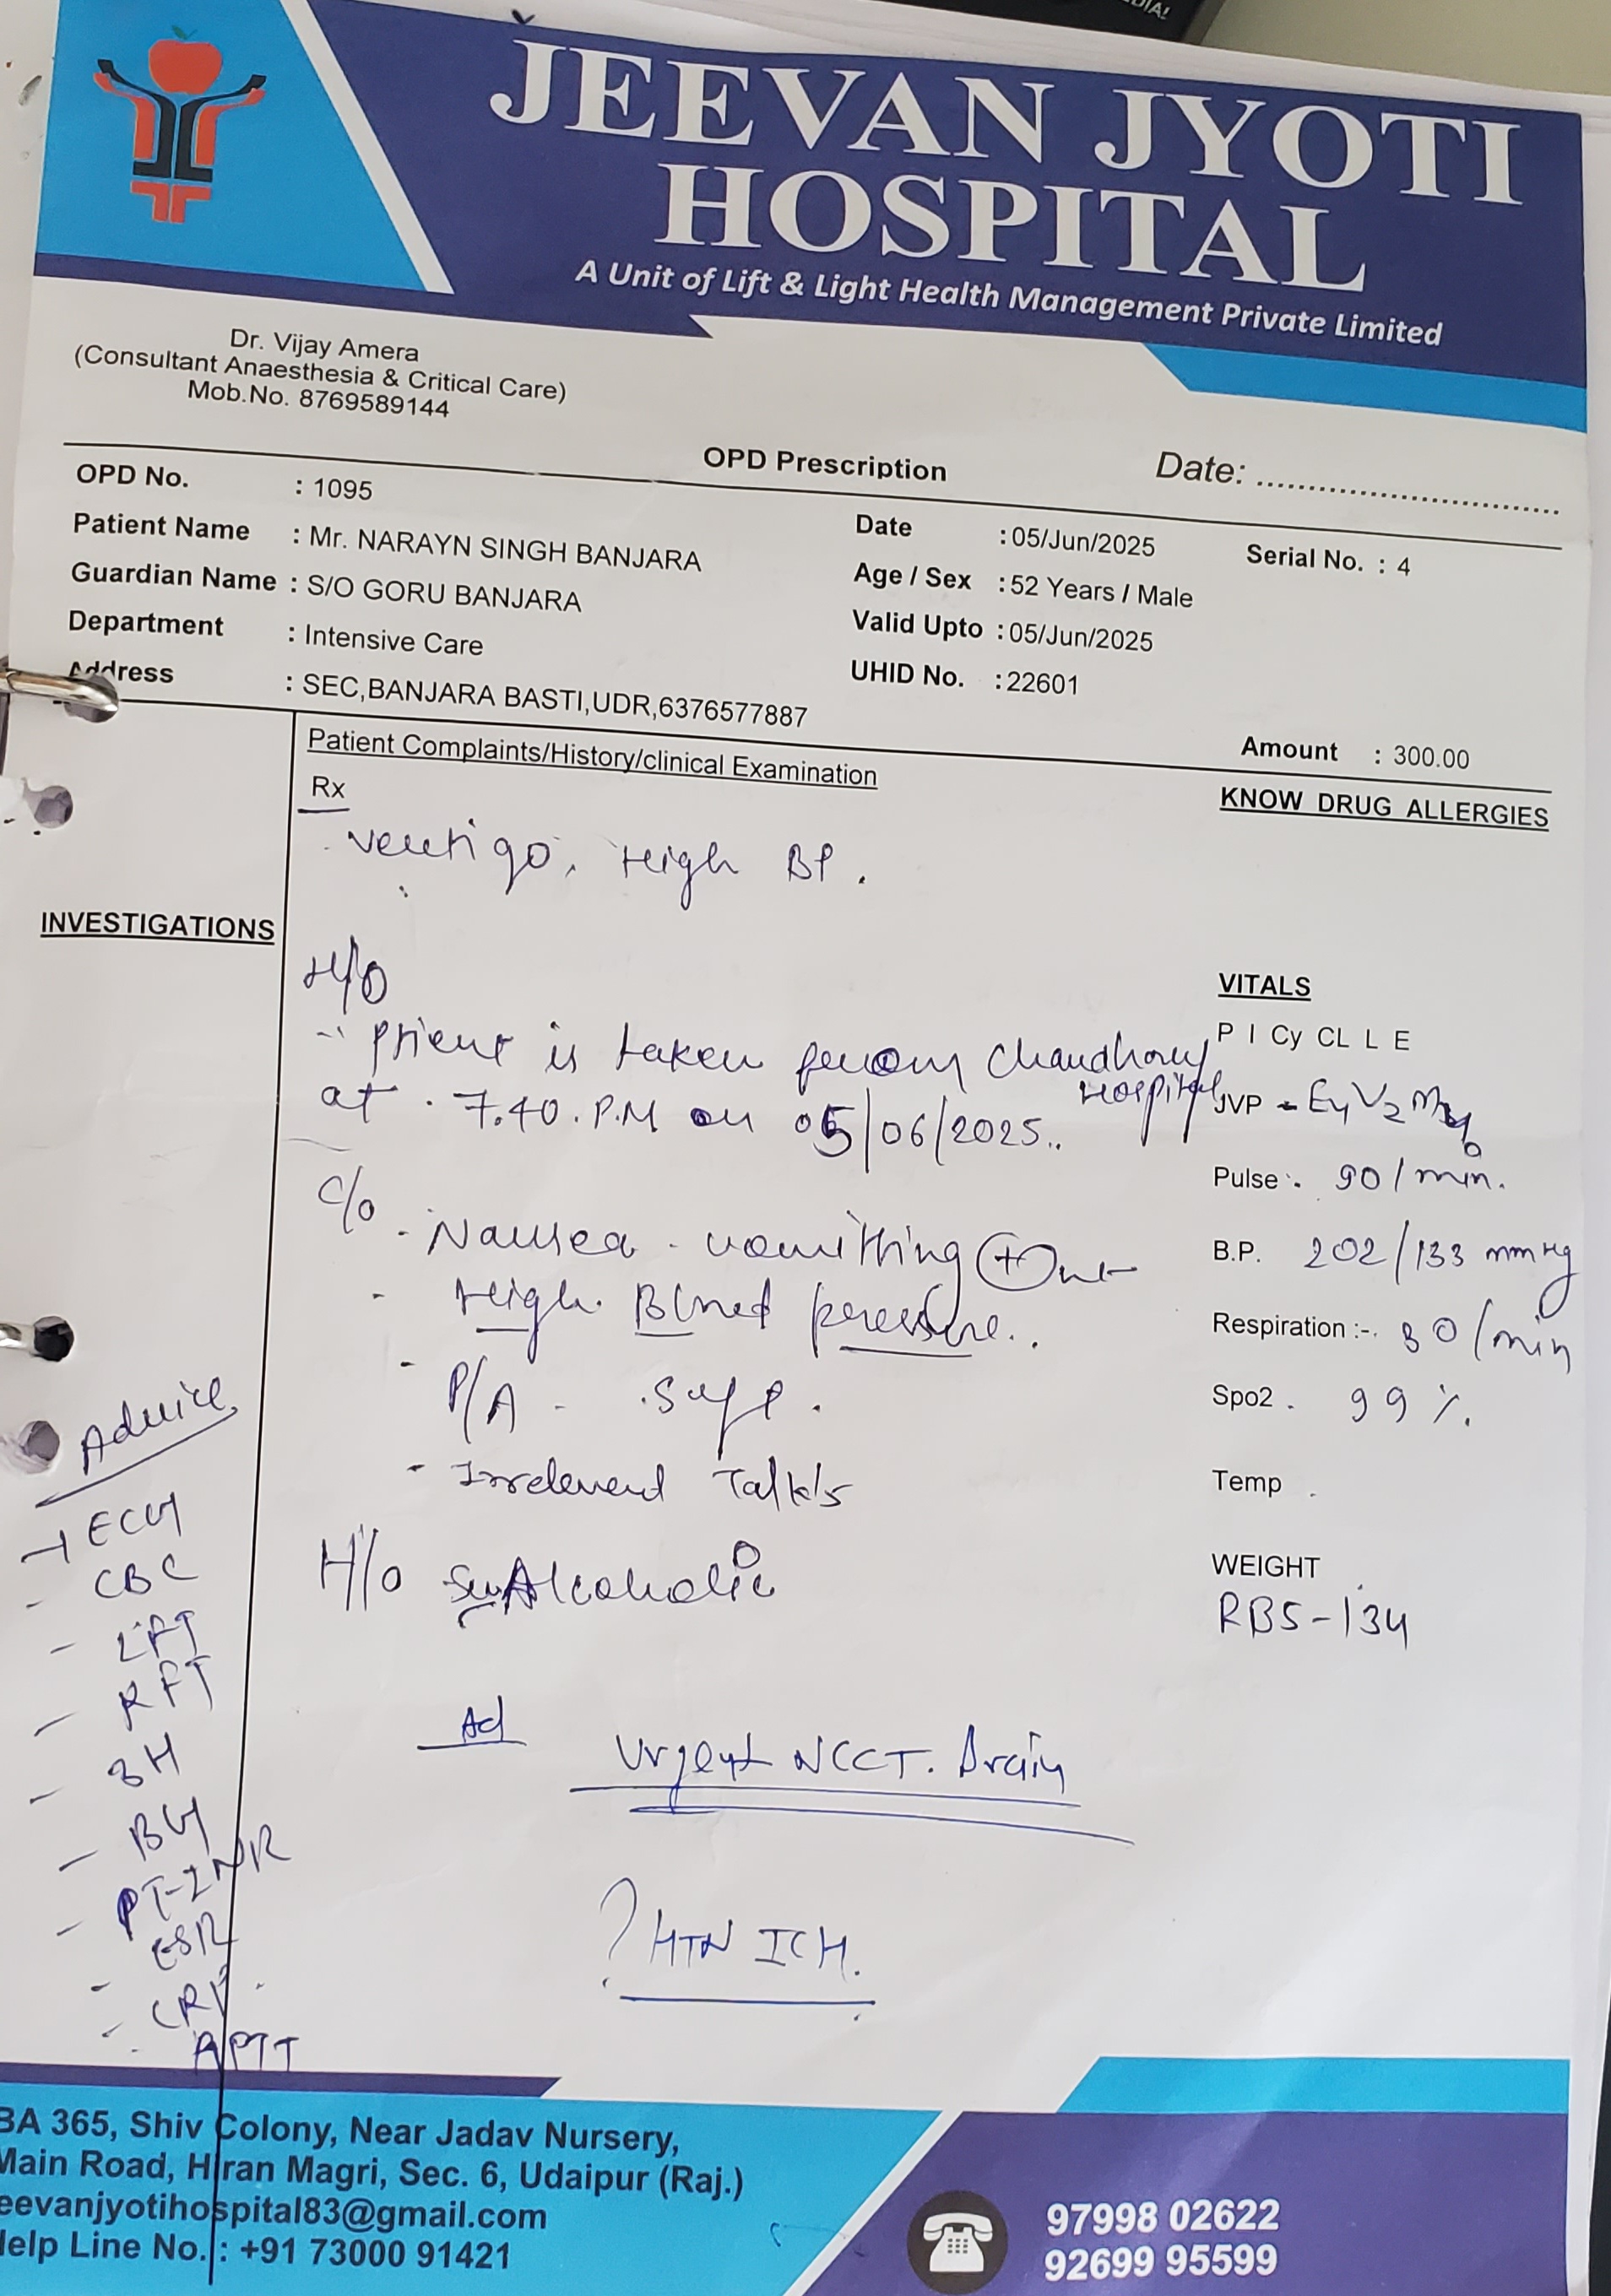 JEEVAN JYOTI
HOSPITAL
A Unit of Lift & Light Health Management Private Limited
Dr. Vijay Amera
(Consultant Anaesthesia & Critical Care)
Mob.No. 8769589144
OPD Prescription
Date: ..............................
OPD No. : 1095
Patient Name : Mr. NARAYN SINGH BANJARA
Guardian Name : S/O GORU BANJARA
Department : Intensive Care
Address : SEC,BANJARA BASTI,UDR,6376577887
Date : 05/Jun/2025
Serial No. : 4
Age / Sex : 52 Years / Male
Valid Upto : 05/Jun/2025
UHID No. : 22601
Amount : 300.00
Patient Complaints/History/clinical Examination
KNOW DRUG ALLERGIES
Rx
vertigo, High BP.
INVESTIGATIONS
H/O
is taken Chaudhary
Hospital
at 7.40. P.M on 05/06/2025..
C/o - Nausea - vomitting (+)
- High Blood pressure..
- P/A - soft.
- Irrelevend Talk's
H/o Alcoholic
Ad
Urgent NCCT. Brain
? HTN ICH.
VITALS
P I Cy CL L E
JVP - E4 V2
Pulse :- 90/min.
B.P. 202/133 mmHg
Respiration :-. 30/min
Spo2 . 99 %.
Temp .
WEIGHT
RBS-134
Advice
ECG
- CBC
- LFT
- RFT
-
-
- PT-INR
ESR
- CRP
- APTT
BA 365, Shiv Colony, Near Jadav Nursery,
Main Road, Hiran Magri, Sec. 6, Udaipur (Raj.)
eevanjyotihospital83@gmail.com
Help Line No. : +91 73000 91421
97998 02622
92699 95599